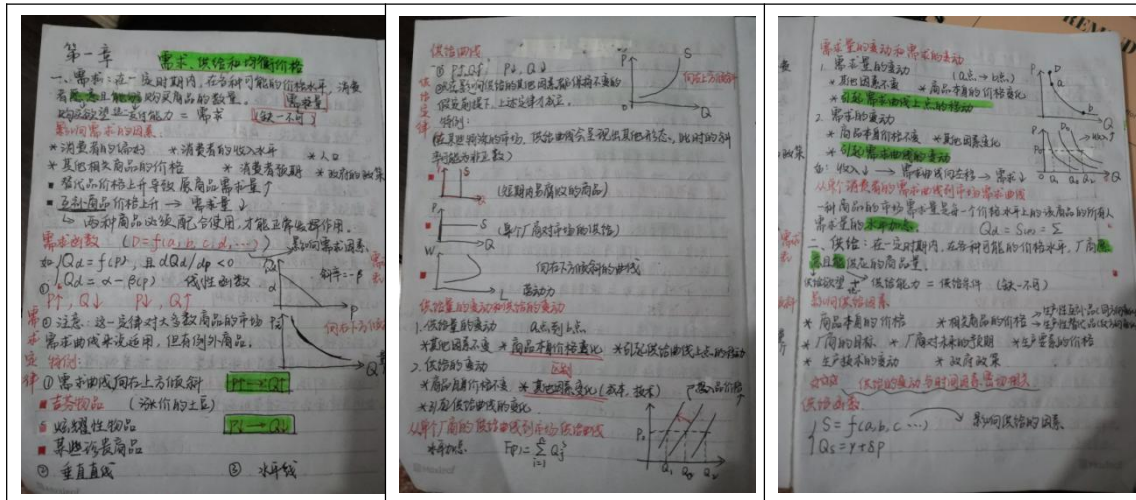 第一章
需求、供给和均衡价格
一、需求：在一定时期内，在各种可能的价格水平，消费
者愿意且能够购买商品的数量。 需求量
购买欲望 支付能力 = 需求 (缺一不可)
影响需求的因素
*消费者的偏好 *消费者的收入水平 *人口
*其他相关商品的价格 *消费者预期 *政府的政策
■ 替代品价格上升导致原商品需求量↑
■ 互补商品价格上升 → 需求量↓
↳ 两种商品必须配合使用，才能正常发挥作用。
需求函数 (D=f(a, b, c, d, …)) 影响需求因素
如 Qd = f(P), 且 dQd/dp < 0
① Qd = α - β(P) 线性函数
Qd
α
斜率=-β
P
P↑, Q↓ P↓, Q↑
需求定律
向右下方倾斜
② 注意：这一定律对大多数商品的市场
需求曲线来说适用，但有例外商品。
P
Q
特例：
① 需求曲线向右上方倾斜 P↑→Q↑
■ 吉芬物品 (涨价的土豆)
■ 炫耀性物品 P↓→Q↓
■ 某些珍贵商品
② 垂直直线 ③ 水平线
供给曲线
① P↑, Q↑, P↓, Q↓
供给定律
假定前提下，上述定律才成立。
P
S
向右上方倾斜
O
Q
特例：
(在某些特殊的市场，供给曲线会呈现出其他形态，此时的斜
率可能为非正数)
P
S
(短期内易腐败的商品)
P
S
Q
(单个厂商对市场的供给)
W
向右下方倾斜的曲线
L
劳动力
供给量的变动和供给的变动
1. 供给量的变动 a点到b点
*其他因素不变 *商品本身价格变化 *引起供给曲线上点的移动
区别
2. 供给的变动
*商品自身价格不变 *其他因素变化(成本，技术)
*引起供给曲线的变化
从单个厂商的供给曲线到市场供给曲线
水平加总
P₀
Q₁ Q₀ Q₂
Q
需求量的变动和需求的变动
1. 需求量的变动 (a点→b点)
*其他因素不变 *商品本身的价格变化
*引起需求曲线上点的移动
P
D
a
b
Q
2. 需求的变动
*商品本身价格不变 *其他因素变化
*引起需求曲线的变动
如：收入↓ → 需求曲线向左移 → 需求↓
P
D₀
收入↑
O Q₁ Q₀ Q₂ Q
从单个消费者的需求曲线到市场需求曲线
一种商品的市场需求量是每一个价格水平上的该商品的所有个人
需求量的水平加总。 Qd = Sum = Σ
二、供给：在一定时期内，在各种可能的价格水平，厂商愿
意且能供应的商品量。
供给欲望 + 供给能力 = 供给条件 (缺一不可)
影响供给因素
*商品本身的价格 *相关商品的价格
*厂商的目标 *厂商对未来的预期 *生产要素的价格
*生产技术的变动 *政府政策
供给的变动与时间因素密切相关
供给函数
S = f(a, b, c …) 影响供给的因素
Qs = γ + δP